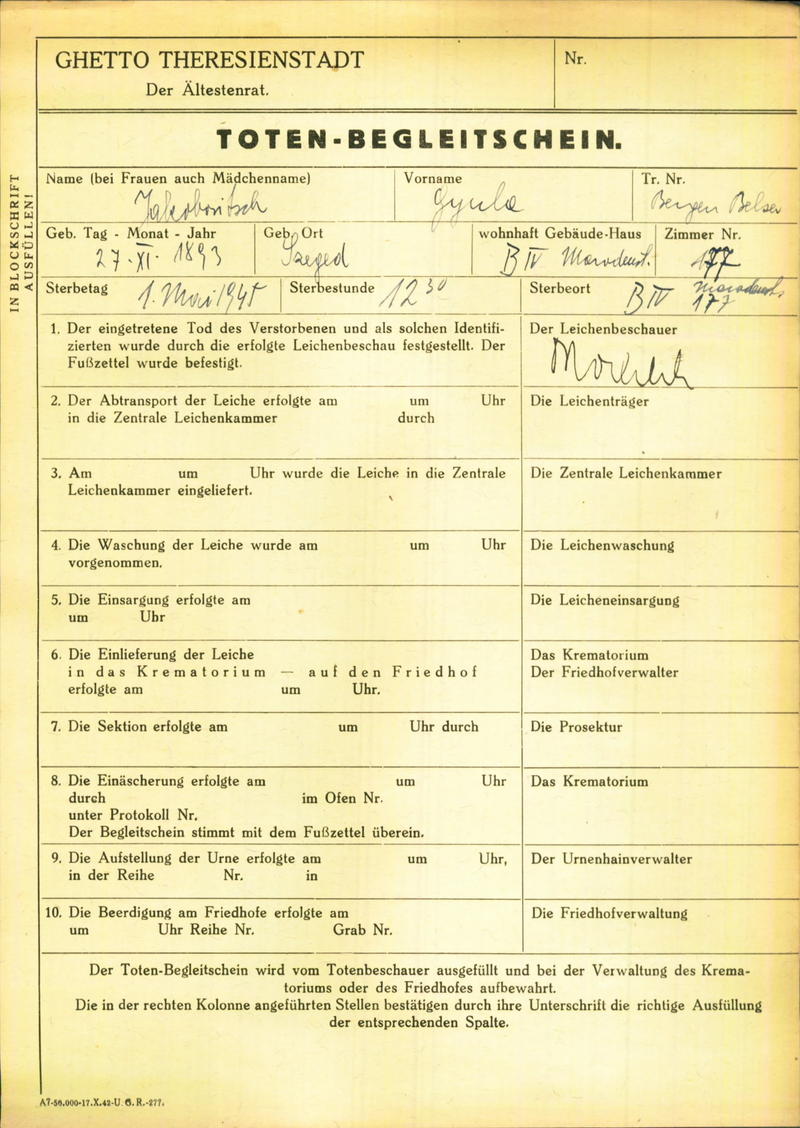 GHETTO THERESIENSTADT
Der Ältestenrat.
Nr.
TOTEN-BEGLEITSCHEIN.
IN BLOCKSCHRIFT
AUSFÜLLEN!
Name (bei Frauen auch Mädchenname)
Jakobovitsch
Vorname
Gyula
Tr. Nr.
Bergen Belsen
Geb. Tag - Monat - Jahr
27·XI· 1893
Geb. Ort
Szeged
wohnhaft Gebäude-Haus
B IV
Zimmer Nr.
177
Sterbetag
1. Mai 1945
Sterbestunde
12 30
Sterbeort
B IV
177
1. Der eingetretene Tod des Verstorbenen und als solchen Identifi-
zierten wurde durch die erfolgte Leichenbeschau festgestellt. Der
Fußzettel wurde befestigt.
Der Leichenbeschauer
2. Der Abtransport der Leiche erfolgte am um Uhr
in die Zentrale Leichenkammer durch
Die Leichenträger
3. Am um Uhr wurde die Leiche in die Zentrale
Leichenkammer eingeliefert.
Die Zentrale Leichenkammer
4. Die Waschung der Leiche wurde am um Uhr
vorgenommen.
Die Leichenwaschung
5. Die Einsargung erfolgte am
um Uhr
Die Leicheneinsargung
6. Die Einlieferung der Leiche
in das Krematorium — auf den Friedhof
erfolgte am um Uhr.
Das Krematorium
Der Friedhofverwalter
7. Die Sektion erfolgte am um Uhr durch
Die Prosektur
8. Die Einäscherung erfolgte am um Uhr
durch im Ofen Nr.
unter Protokoll Nr.
Der Begleitschein stimmt mit dem Fußzettel überein.
Das Krematorium
9. Die Aufstellung der Urne erfolgte am um Uhr,
in der Reihe Nr. in
Der Urnenhainverwalter
10. Die Beerdigung am Friedhofe erfolgte am
um Uhr Reihe Nr. Grab Nr.
Die Friedhofverwaltung
Der Toten-Begleitschein wird vom Totenbeschauer ausgefüllt und bei der Verwaltung des Krema-
toriums oder des Friedhofes aufbewahrt.
Die in der rechten Kolonne angeführten Stellen bestätigen durch ihre Unterschrift die richtige Ausfüllung
der entsprechenden Spalte.
A7-50.000-17.X.42-U. G. R.-277.